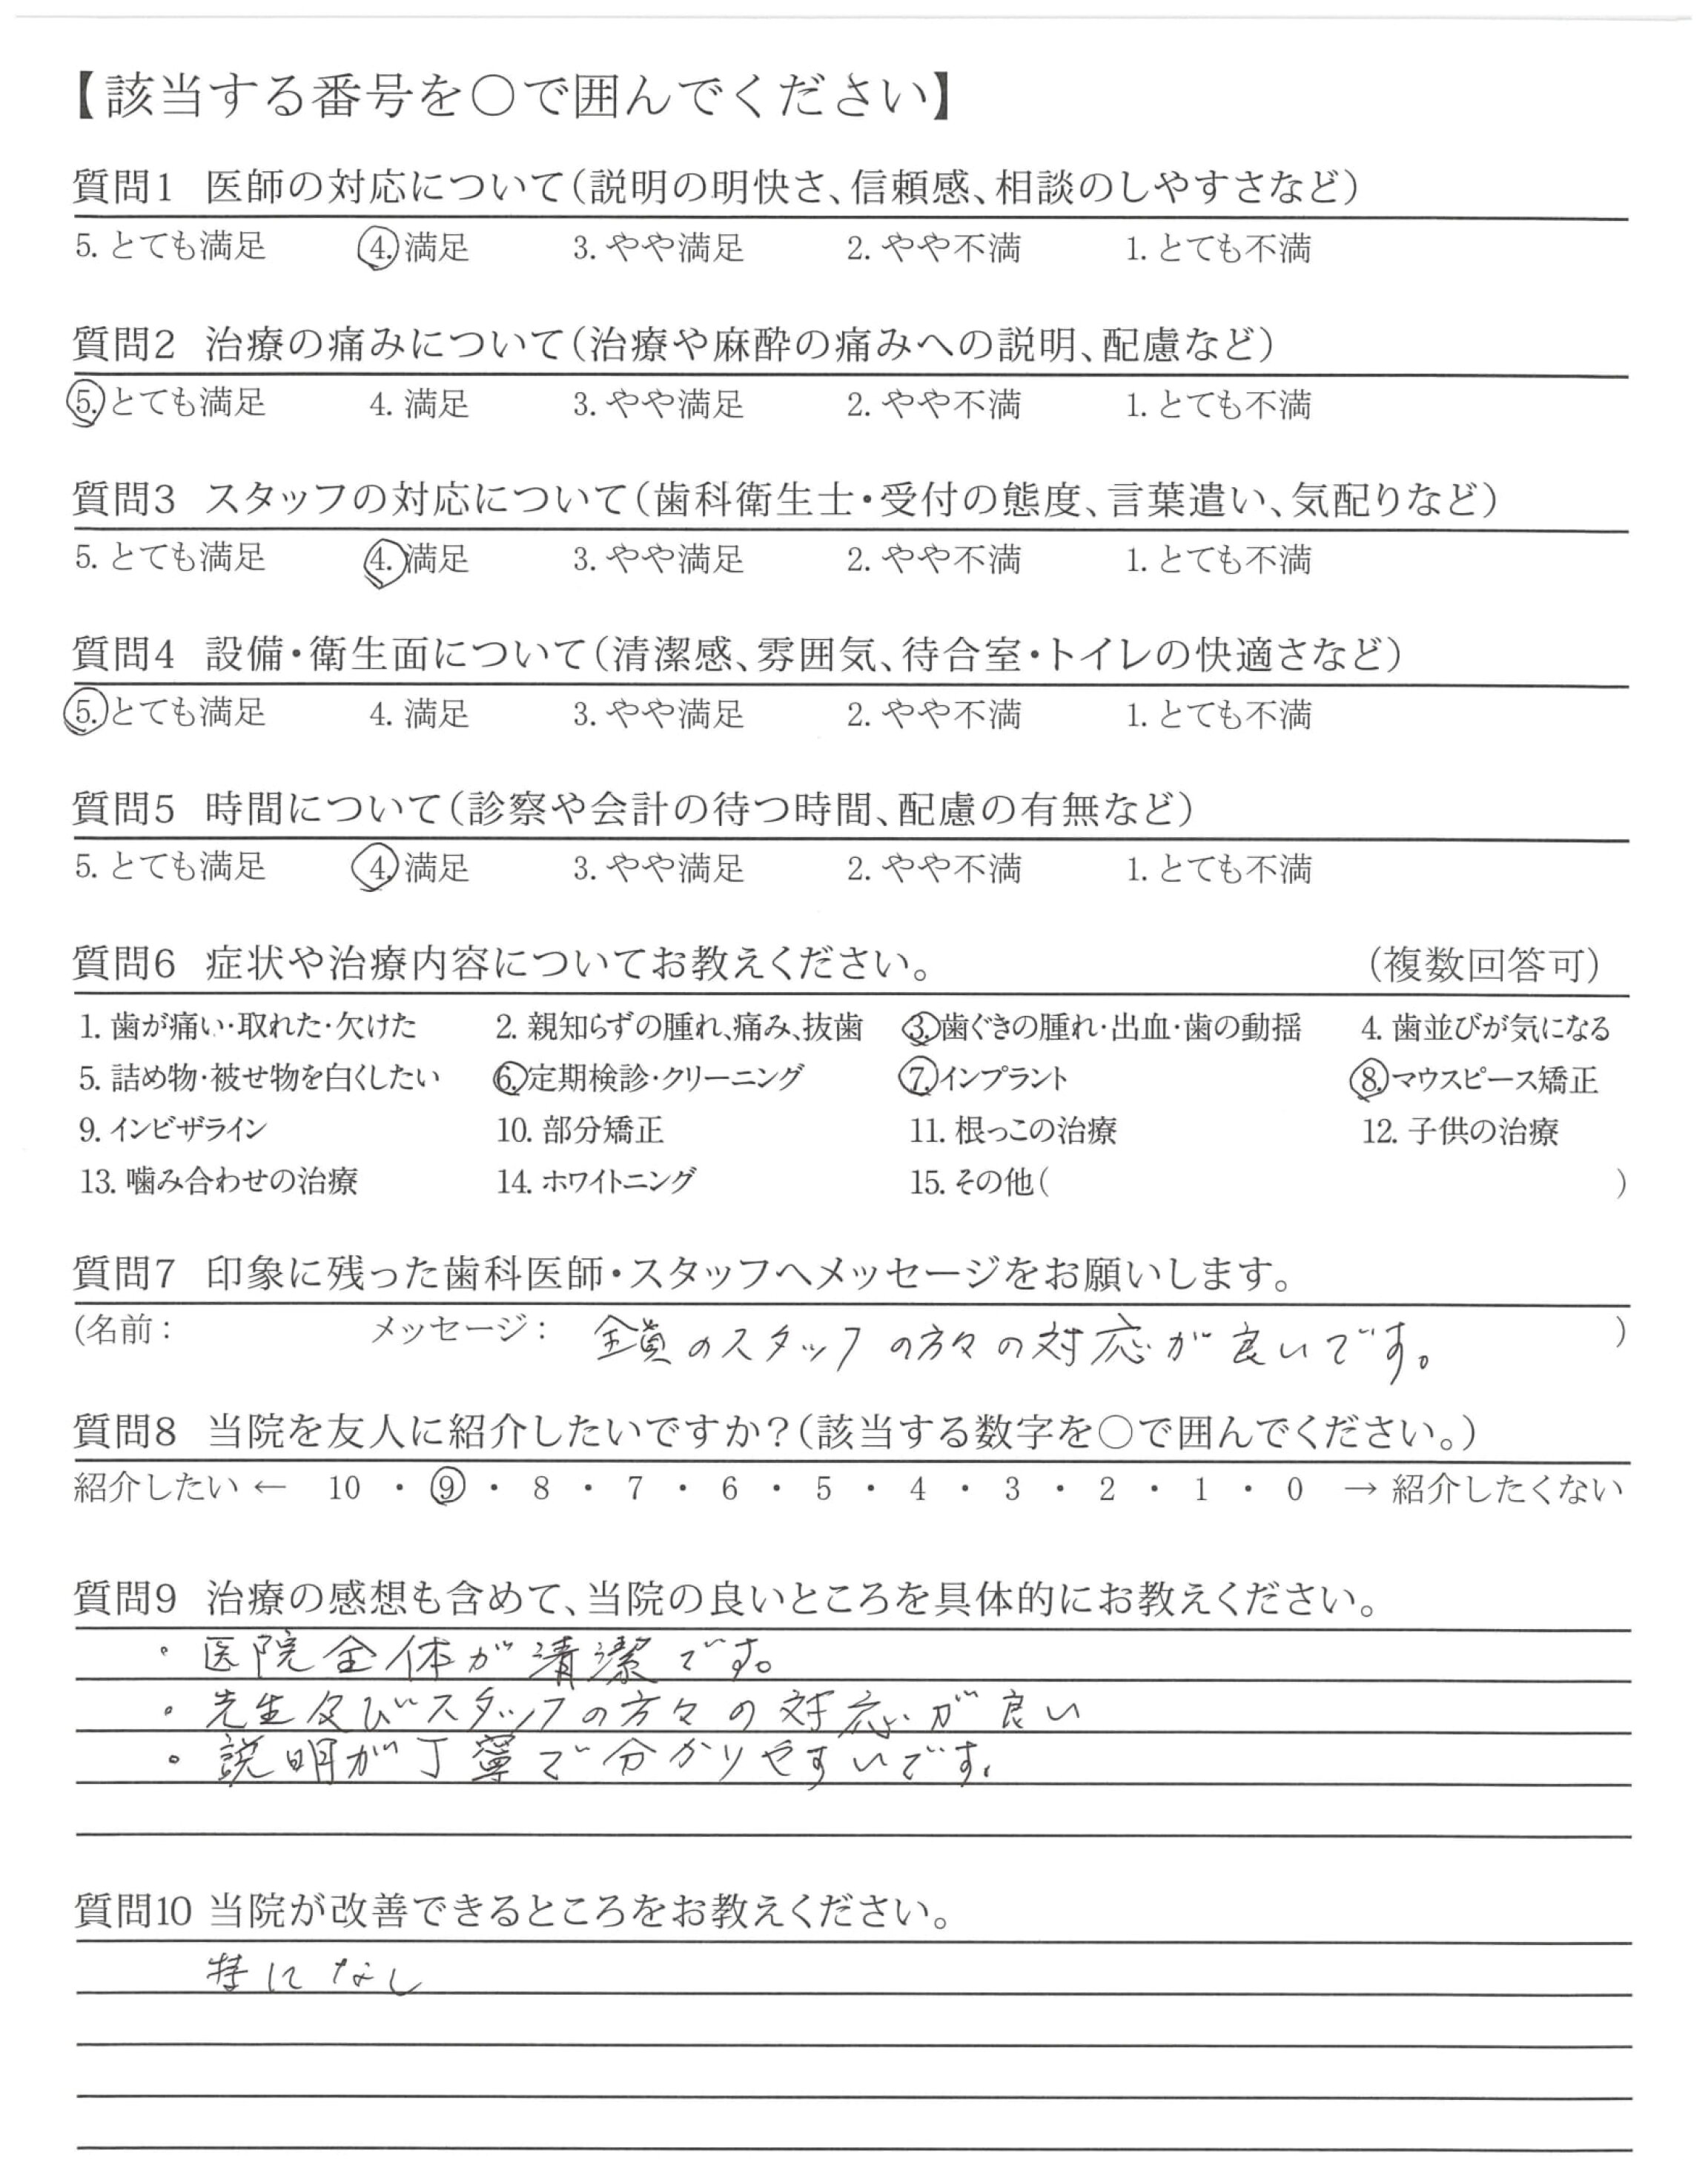 【該当する番号を○で囲んでください】
質問1 医師の対応について(説明の明快さ、信頼感、相談のしやすさなど)
5. とても満足 4. 満足 3. やや満足 2. やや不満 1. とても不満
質問2 治療の痛みについて(治療や麻酔の痛みへの説明、配慮など)
5. とても満足 4. 満足 3. やや満足 2. やや不満 1. とても不満
質問3 スタッフの対応について(歯科衛生士・受付の態度、言葉遣い、気配りなど)
5. とても満足 4. 満足 3. やや満足 2. やや不満 1. とても不満
質問4 設備・衛生面について(清潔感、雰囲気、待合室・トイレの快適さなど)
5. とても満足 4. 満足 3. やや満足 2. やや不満 1. とても不満
質問5 時間について(診察や会計の待つ時間、配慮の有無など)
5. とても満足 4. 満足 3. やや満足 2. やや不満 1. とても不満
質問6 症状や治療内容についてお教えください。 (複数回答可)
1. 歯が痛い・取れた・欠けた 2. 親知らずの腫れ、痛み、抜歯 3. 歯ぐきの腫れ・出血・歯の動揺 4. 歯並びが気になる
5. 詰め物・被せ物を白くしたい 6. 定期検診・クリーニング 7. インプラント 8. マウスピース矯正
9. インビザライン 10. 部分矯正 11. 根っこの治療 12. 子供の治療
13. 噛み合わせの治療 14. ホワイトニング 15. その他( )
質問7 印象に残った歯科医師・スタッフへメッセージをお願いします。
(名前: メッセージ: 全員のスタッフの方々の対応が良いです。 )
質問8 当院を友人に紹介したいですか?(該当する数字を○で囲んでください。)
紹介したい ← 10 ・ 9 ・ 8 ・ 7 ・ 6 ・ 5 ・ 4 ・ 3 ・ 2 ・ 1 ・ 0 → 紹介したくない
質問9 治療の感想も含めて、当院の良いところを具体的にお教えください。
・医院全体が清潔です。
・先生及びスタッフの方々の対応が良い
・説明が丁寧で分かりやすいです。
質問10 当院が改善できるところをお教えください。
特になし